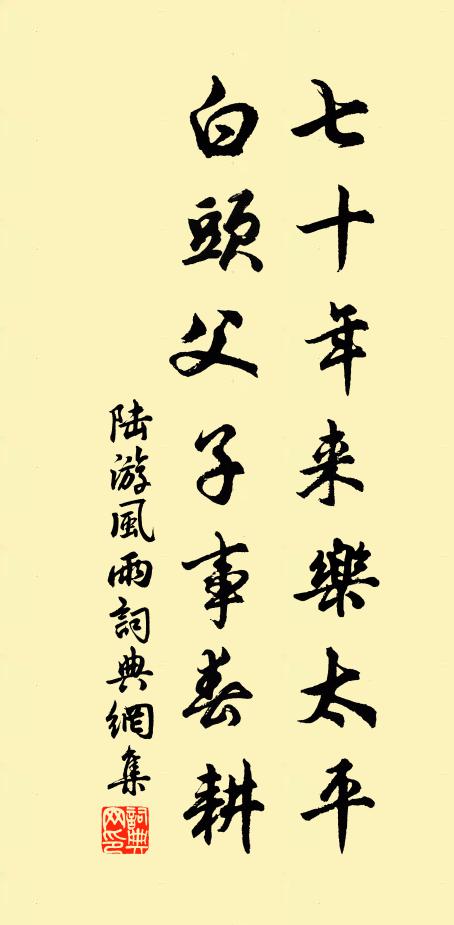 七十年来樂太平
白頭父子事春耕
陆游風雨詞典網集
詞典网印